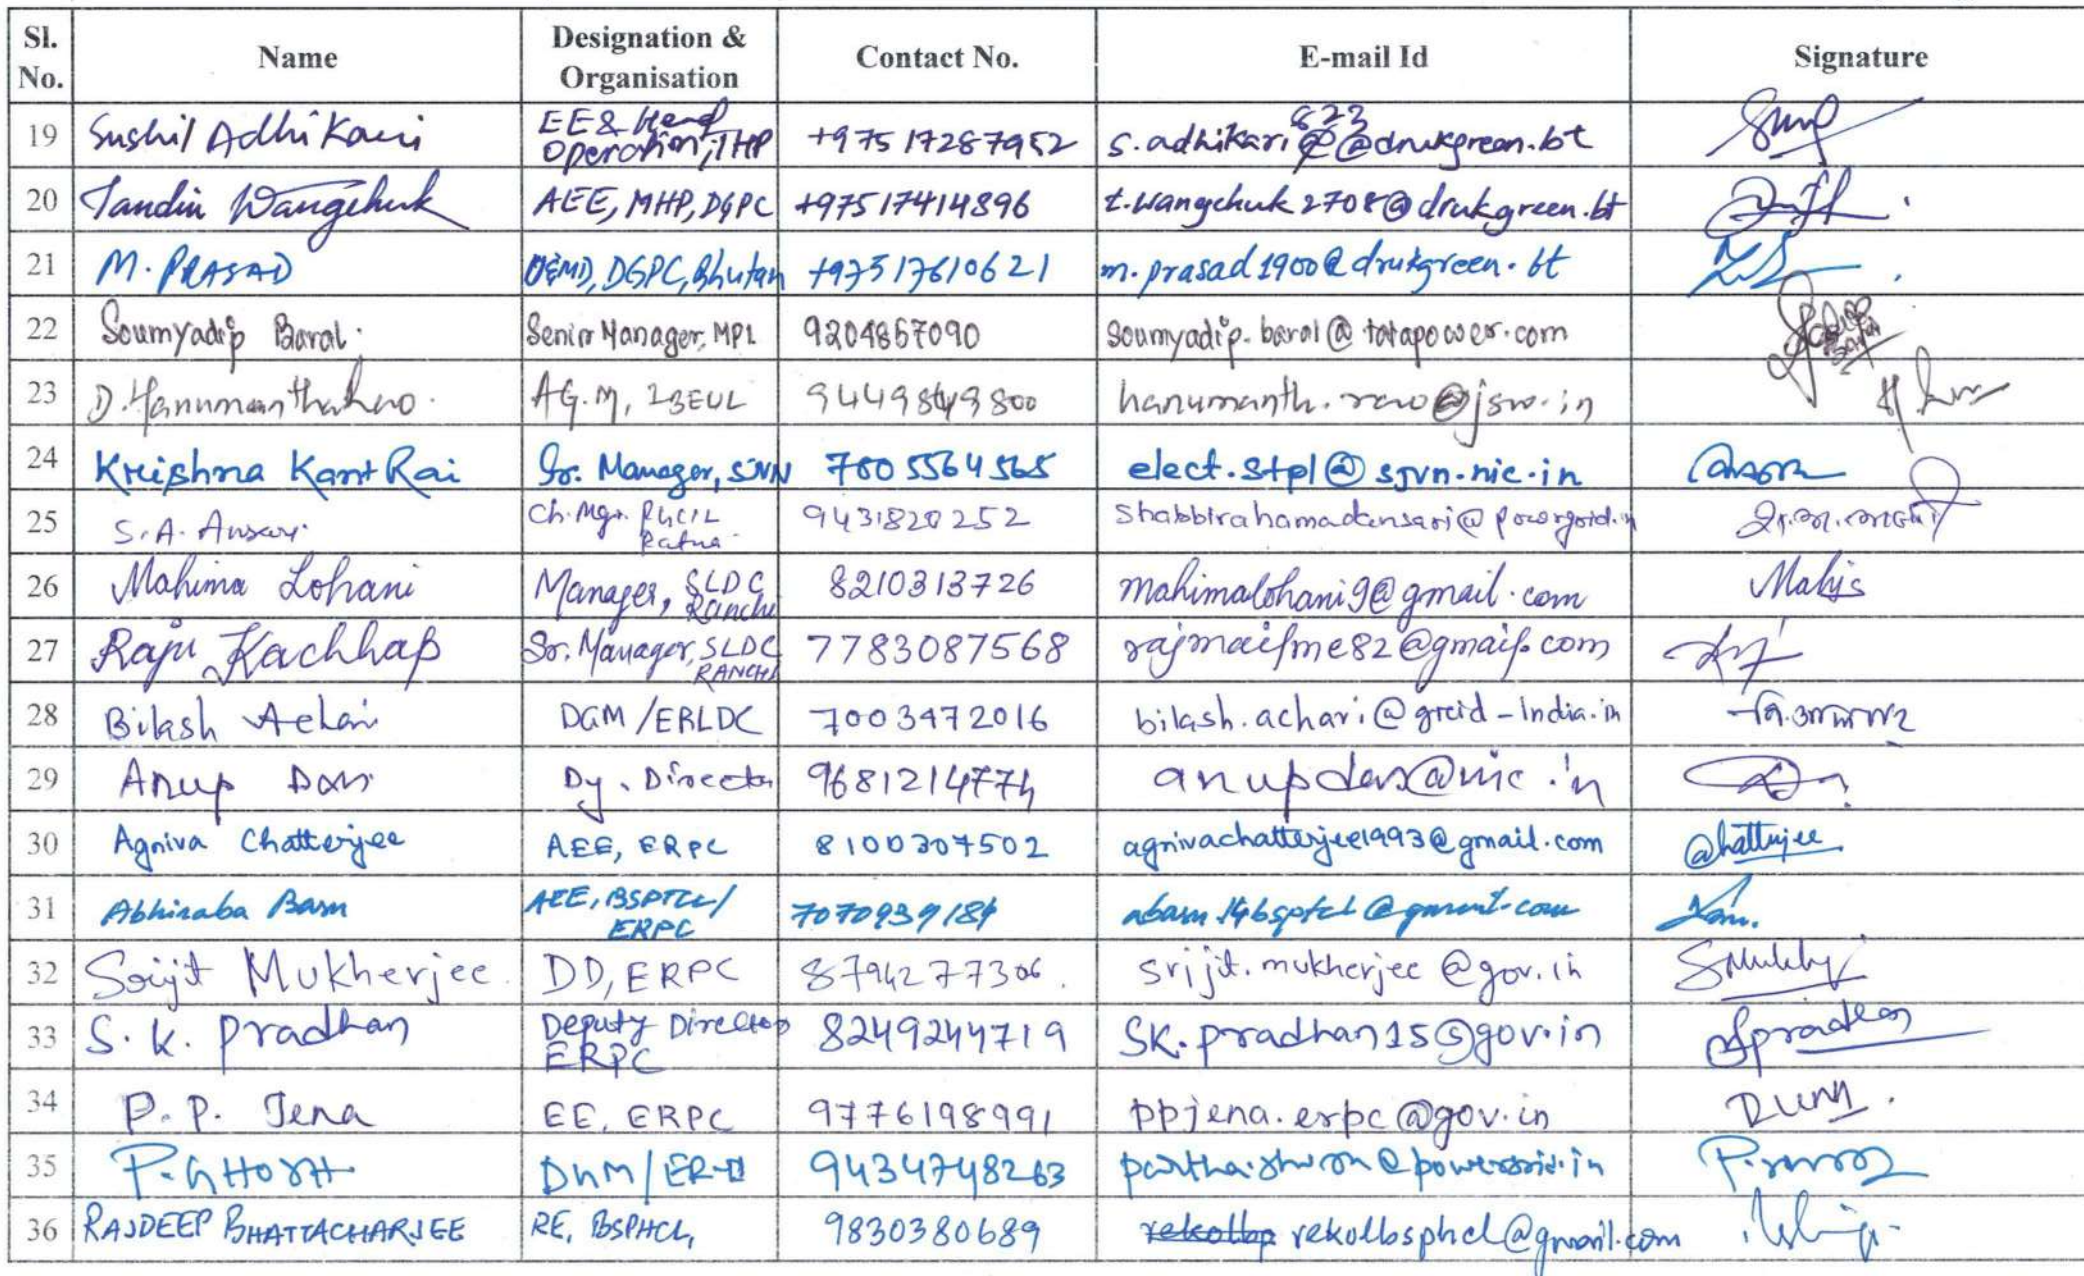 Sl. No. Name Designation & Organisation Contact No. E-mail Id Signature
19 Sushil Adhikari EE & Head Operation, THP +975 17287952 s.adhikari823@drukgreen.bt
20 Tandin Wangchuk AEE, MHP, DGPC +97517414896 t.wangchuk2708@drukgreen.bt
21 M. PRASAD OEMD, DGPC, Bhutan +97517610621 m.prasad1900@drukgreen.bt
22 Soumyadip Baral. Senior Manager, MPL 9204867090 soumyadip.baral@tatapower.com
23 D. Hanumantha Rao. AG.M, 9449849800 hanumanth.rao@jsw.in
24 Krishna Kant Rai Sr. Manager, SJVN 7805564565 elect.stpl@sjvn.nic.in
25 S.A. Ansari. Ch. Mgr. PGCIL Patna 9431820252 shabbirahamadansari@powergrid.in
26 Mahima Lohani Manager, SLDC Ranchi 8210313726 mahimalohani9@gmail.com
27 Raju Kachhap Sr. Manager, SLDC RANCHI 7783087568 rajmailme82@gmail.com
28 Bilash Achari DGM/ERLDC 7003472016 bilash.achari@grid-india.in
29 Anup Das Dy. Director 9681214774 anupdas@nic.in
30 Agniva Chatterjee AEE, ERPC 8100307502 agnivachatterjee1993@gmail.com Chatterjee
31 Abhiraba Basu AEE, BSPTCL/ ERPC 7070939184 abasu.14bsptcl@gmail.com
32 Srijit Mukherjee DD, ERPC 8794277306. srijit.mukherjee@gov.in
33 S. K. Pradhan Deputy Director ERPC 8249244719 SK.pradhan15@gov.in Spradhan
34 P. P. Jena EE, ERPC 9776198991 ppjena.erpc@gov.in
35 P. GHOSH DGM/ER-II 9434748263 partha.ghosh@powergrid.in
36 RAJDEEP BHATTACHARJEE RE, BSPHCL, 9830380689 rekolbsphcl@gmail.com